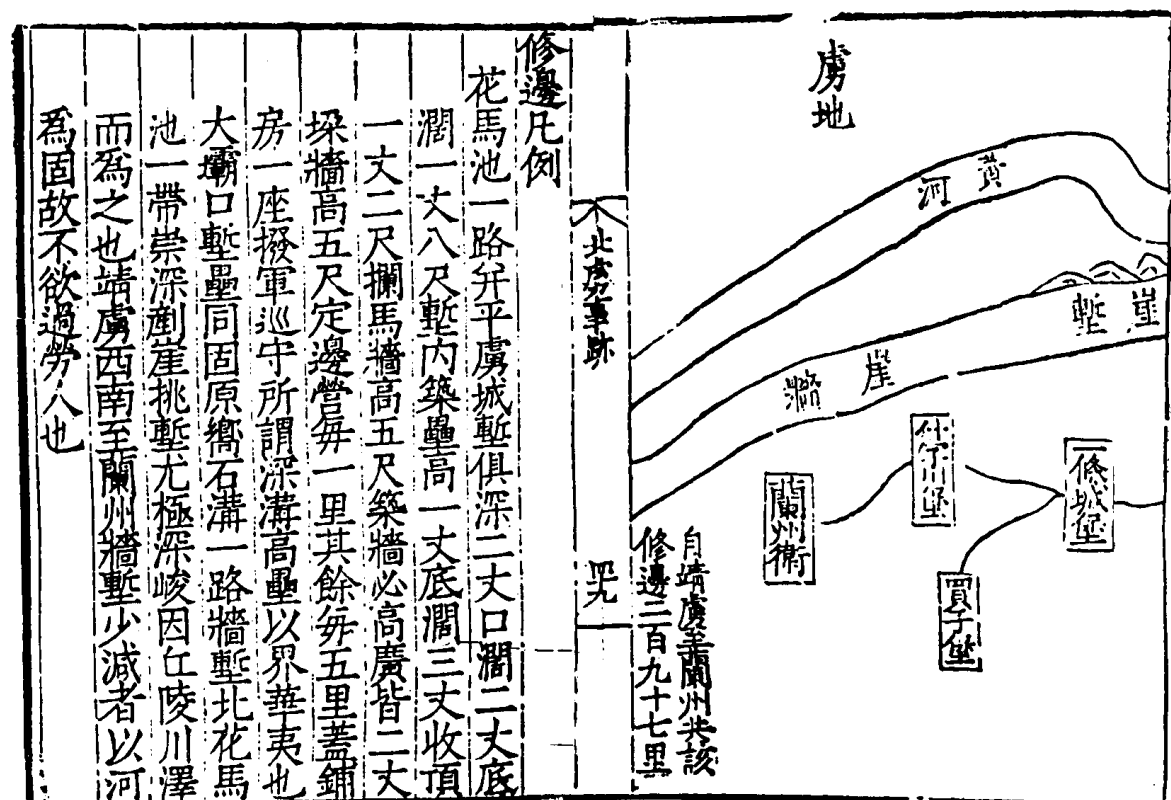 虜地
黃河
崖塹
崖牆
一條城堡
買子堡
蘭州衛
自靖虜至蘭州共該
修邊二百九十七里
北虜事跡
四九
修邊凡例
花馬池一路幷平虜城塹俱深二丈口濶二丈底
濶一丈八尺塹內築壘高一丈底濶三丈收頂
一丈二尺攔馬牆高五尺築牆必高廣皆二丈
垛牆高五尺定邊營每一里其餘每五里蓋鋪
房一座撥軍巡守所謂深溝高壘以界華夷也
大壩口塹壘同固原嚮石溝一路牆塹北花馬
池一帶崇深剷崖挑塹尤極深峻因丘陵川澤
而為之也靖虜西南至蘭州牆塹少減者以河
為固故不欲過勞人也